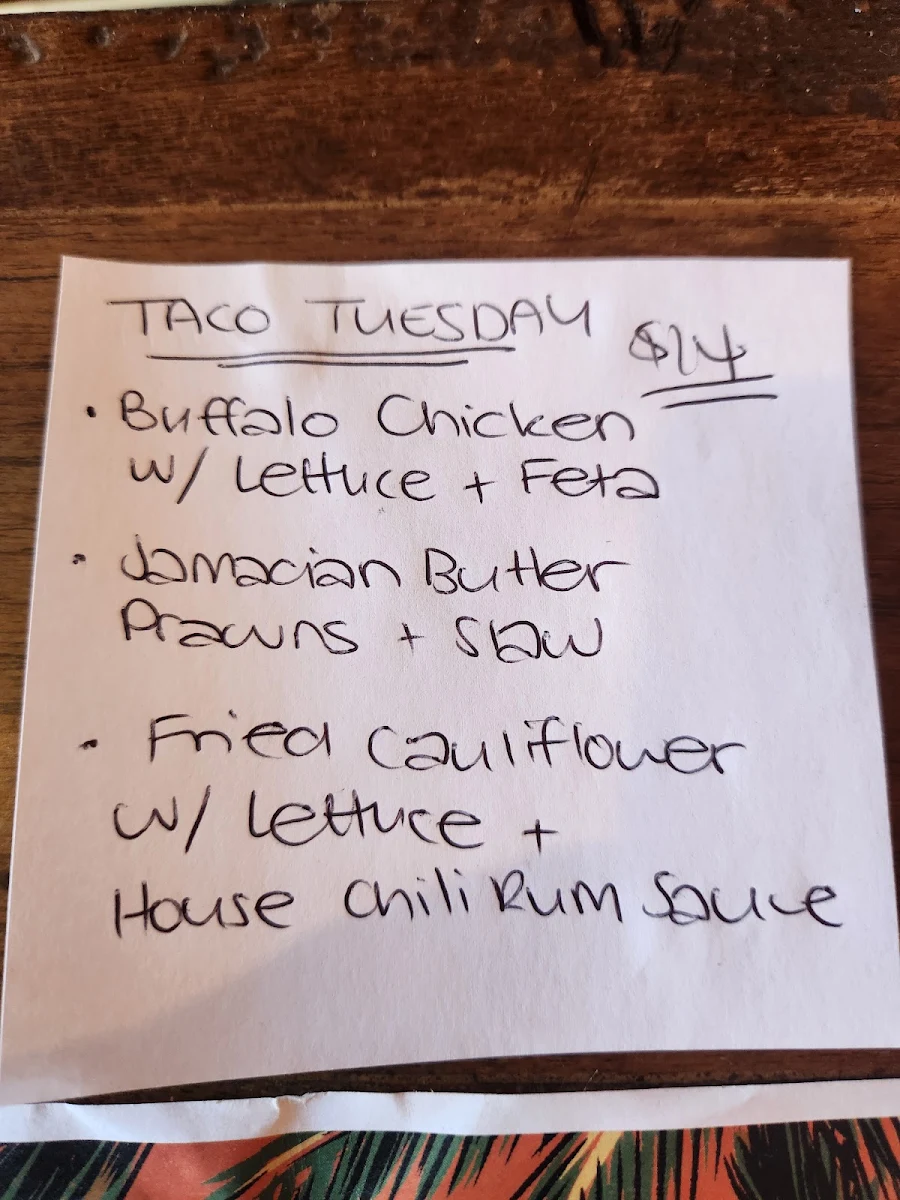 TACO TUESDAY $14
• Buffalo Chicken
w/ Lettuce + Feta
• Jamacian Butter
Prawns + Slaw
• Fried Cauliflower
w/ Lettuce +
House Chili Rum Sauce